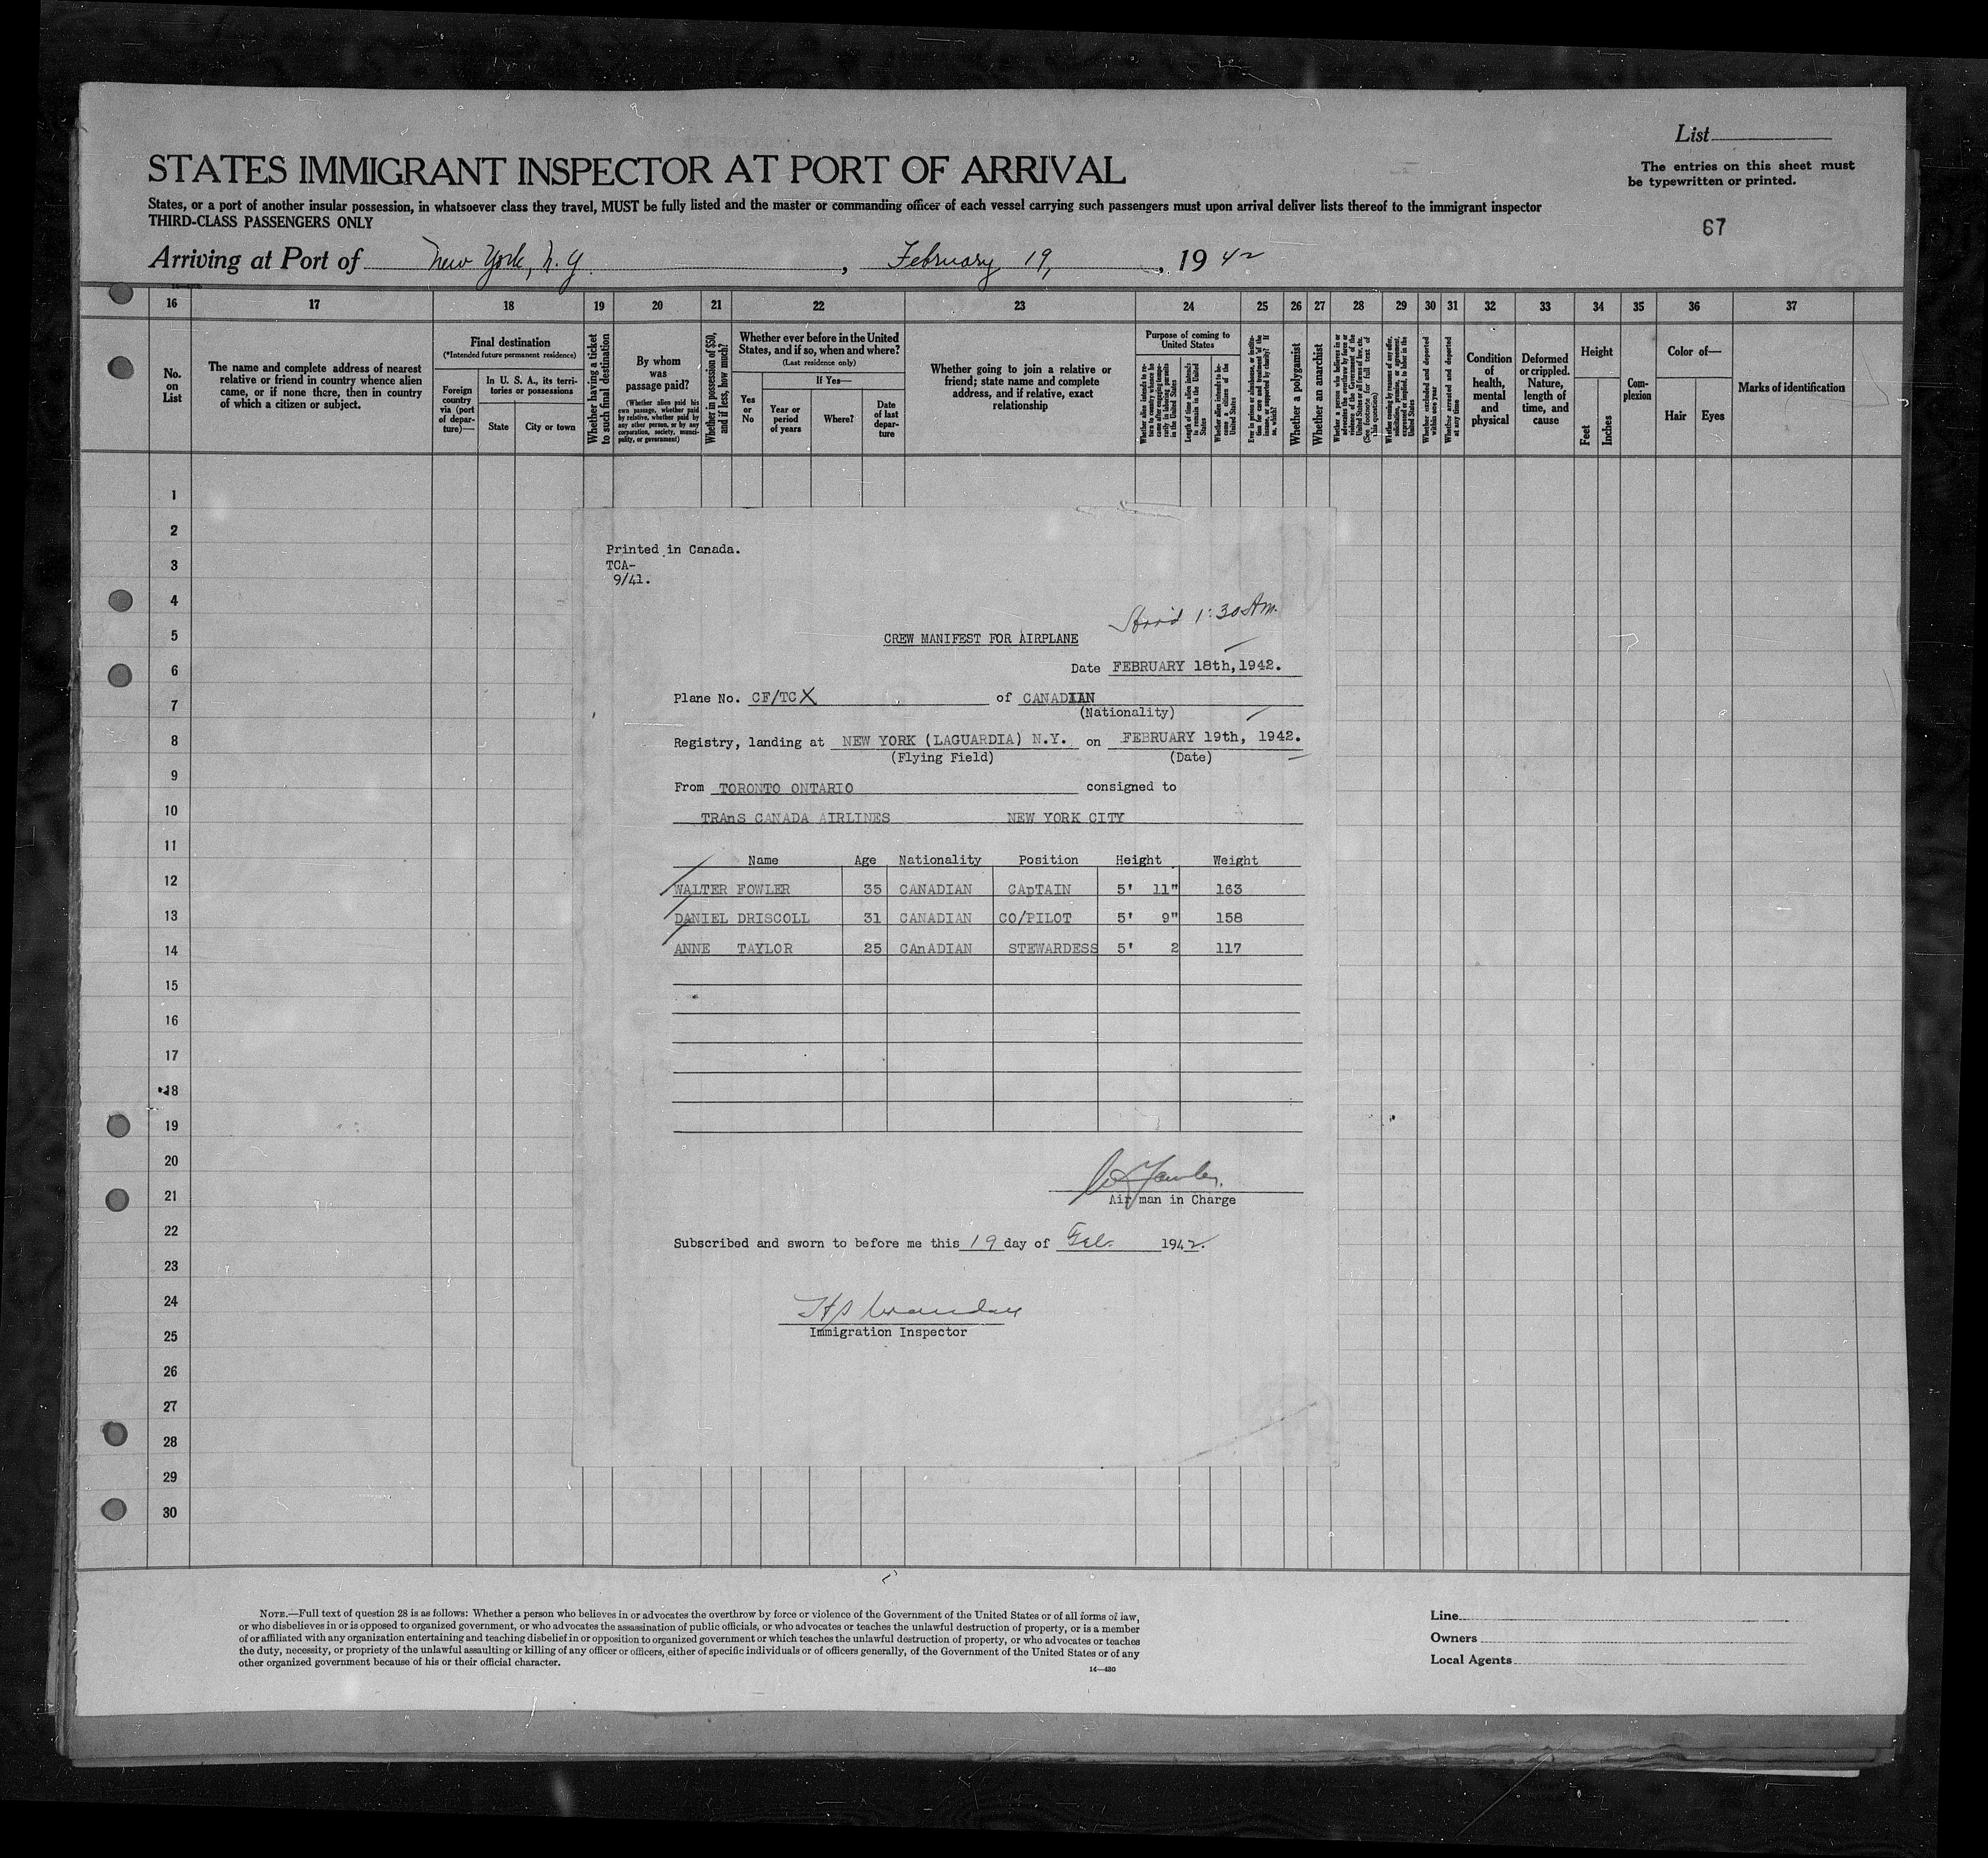 List
STATES IMMIGRANT INSPECTOR AT PORT OF ARRIVAL
The entries on this sheet must
be typewritten or printed.
States, or a port of another insular possession, in whatsoever class they travel, MUST be fully listed and the master or commanding officer of each vessel carrying such passengers must upon arrival deliver lists thereof to the immigrant inspector
THIRD-CLASS PASSENGERS ONLY
67
Arriving at Port of New York, N.Y. , February 19, , 1942
16 17 18 19 20 21 22 23 24 25 26 27 28 29 30 31 32 33 34 35 36 37
No.
on
List
The name and complete address of nearest
relative or friend in country whence alien
came, or if none there, then in country
of which a citizen or subject.
Final destination
(*Intended future permanent residence)
Foreign
country
via (port
of depar-
ture)—
In U. S. A., its terri-
tories or possessions
State
City or town
Whether having a ticket
to such final destination
By whom
was
passage paid?
(Whether alien paid his
own passage, whether paid
by relative, whether paid by
any other person, or by any
corporation, society, munici-
pality, or government)
Whether in possession of $50,
and if less, how much?
Whether ever before in the United
States, and if so, when and where?
(Last residence only)
If Yes—
Yes
or
No
Year or
period
of years
Where?
Date
of last
depar-
ture
Whether going to join a relative or
friend; state name and complete
address, and if relative, exact
relationship
Purpose of coming to
United States
Length of time alien intends
to remain in the United
States
Whether alien intends to be-
come a citizen of the
United States
Whether a polygamist
Whether an anarchist
Whether excluded and deported
within one year
Whether arrested and deported
at any time
Condition
of
health,
mental
and
physical
Deformed
or crippled.
Nature,
length of
time, and
cause
Height
Feet
Inches
Com-
plexion
Color of—
Hair
Eyes
Marks of identification
1
2
3
4
5
6
7
8
9
10
11
12
13
14
15
16
17
18
19
20
21
22
23
24
25
26
27
28
29
30
Printed in Canada.
TCA-
9/41.
1:30 AM.
CREW MANIFEST FOR AIRPLANE
Date FEBRUARY 18th,1942.
Plane No. CF/TCX of CANADIAN
(Nationality)
Registry, landing at NEW YORK (LAGUARDIA) N.Y. on FEBRUARY 19th, 1942.
(Flying Field) (Date)
From TORONTO ONTARIO consigned to
TRAnS CANADA AIRLINES NEW YORK CITY
Name Age Nationality Position Height Weight
WALTER FOWLER 35 CANADIAN CApTAIN 5' 11" 163
DANIEL DRISCOLL 31 CANADIAN CO/PILOT 5' 9" 158
ANNE TAYLOR 25 CAnADIAN STEWARDESS 5' 2 117
W Fowler.
Air man in Charge
Subscribed and sworn to before me this 19 day of Feb. 1942.
Immigration Inspector
NOTE.—Full text of question 28 is as follows: Whether a person who believes in or advocates the overthrow by force or violence of the Government of the United States or of all forms of law,
or who disbelieves in or is opposed to organized government, or who advocates the assassination of public officials, or who advocates or teaches the unlawful destruction of property, or is a member
of or affiliated with any organization entertaining and teaching disbelief in or opposition to organized government or which teaches the unlawful destruction of property, or who advocates or teaches
the duty, necessity, or propriety of the unlawful assaulting or killing of any officer or officers, either of specific individuals or of officers generally, of the Government of the United States or of any
other organized government because of his or their official character.
14—430
Line
Owners
Local Agents